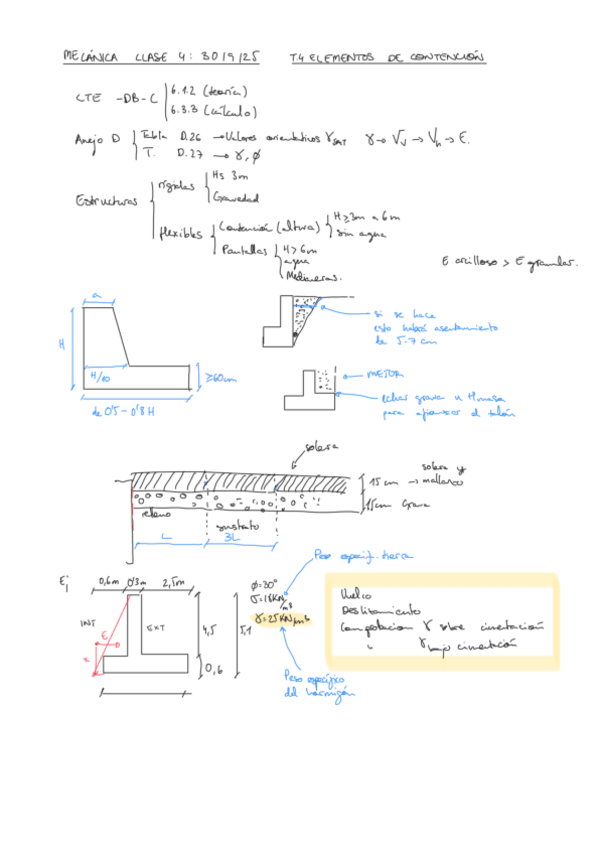 MECÁNICA CLASE 4: 30/9/25 T.4 ELEMENTOS DE CONTENCIÓN
CTE -DB-C
6.1.2 (teoría)
6.3.3 (cálculo)
Anejo D
Tabla D.26 → Valores orientativos γSAT γ → Vv → Vh → E.
T. D.27 → γ, φ
Estructuras
rígidas
H≤ 3m
Gravedad
flexibles
Contención (altura)
H≥3m a 6m
sin agua
Pantallas
H>6m
agua
Medianeras.
E arcilloso > E granular.
a
H
H/10
≥60cm
de 0'5-0'8H
si se hace
esto habrá asentamiento
de 5-7 cm
MEJOR
echar grava u
para afianzar el talón
solera
15 cm → solera y mallazo
15cm Grava
relleno
sustrato
L
3L
Ej
0,6m 0'3m 2,5m
INT
EXT
E
x
4,5
0,6
5,1
φ=30°
γ=18KN/m3
γ=25KN/m3
Peso específ. tierra
Peso específico
del hormigón
Vuelco
Deslizamiento
Comprobación γ sobre cimentación
" γ bajo cimentación